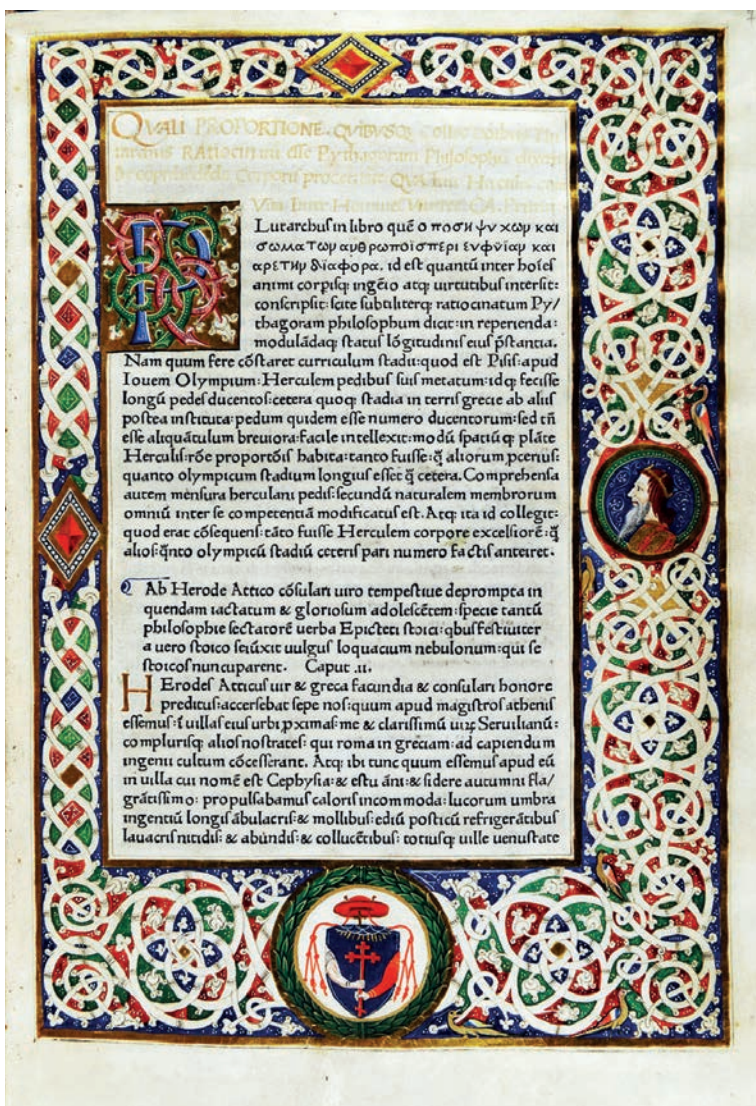 QVALI PROPORTIONE. QVIBUSQ; Collectionibus Plu
tarchus RAtiocinatum esse Pythagoram Philosophū
corporis proceritate QVA fuit Hercules
Vita Inter Homines
Lutarchus in libro quē οποση ψυχων και
σωματων ανθρωποισ περι ευφνϊαν και
αρετην δϊαφορα. id est quantū inter hoīes
animi corpisq; ingēio atq; uirtutibus intersit:
conscripsit: scite subtiliterq; ratiocinatum Py/
thagoram philosophum dicit: in reperienda:
modulādaq; status lōgitudinis eius p̄stantia.
Nam quum fere cōstaret curriculum stadii: quod est Pisis: apud
Iouem Olympium: Herculem pedibus suis metatum: idq; fecisse
longū pedes ducentos: cetera quoq; stadia in terris grecie ab aliis
postea instituta: pedum quidem esse numero ducentorum: sed tn̄
esse aliquātulum breuiora: facile intellexit: modū spatiūq; plāte
Herculis: rōe proportōis habita: tanto fuisse: q̄ aliorum pcerius:
quanto olympicum stadium longius esset q̄ cetera. Comprehensa
autem mensura herculani pedis: secundū naturalem membrorum
omniū inter se competentiā modificatus est. Atq; ita id collegit:
quod erat cōsequens: tāto fuisse Herculem corpore excelsiorē: q̄
alios: q̄nto olympicū stadiū ceteris pari numero factis anteiret.
Ab Herode Attico cōsulari uiro tempestiue deprompta in
quendam iactatum & gloriosum adolescētem: specie tantū
philosophie sectatorē uerba Epicteti stoici: qbus festiuiter
a uero stoico seiūxit uulgus loquacium nebulonum: qui se
stoicos nuncuparent. Caput .ii.
HErodes Atticus uir & greca facundia & consulari honore
preditus: accersebat sepe nos: quum apud magistros athenis
essemus: ī uillas eius urbi pximas: me & clarissimū uiꝝ Seruilianū:
complurisq; alios nostrates: qui roma in greciam: ad capiendum
ingenii cultum cōcesserant. Atq; ibi tunc quum essemus apud eū
in uilla cui nomē est Cephysia: & estu āni: & sidere autumni fla/
grātissimo: propulsabamus caloris incommoda: lucorum umbra
ingentiū longis ābulacris & mollibus: ediū posticū refrigerātibus
lauacris nitidis: & abūndis: & collucētibus: totiusq; uille uenustate